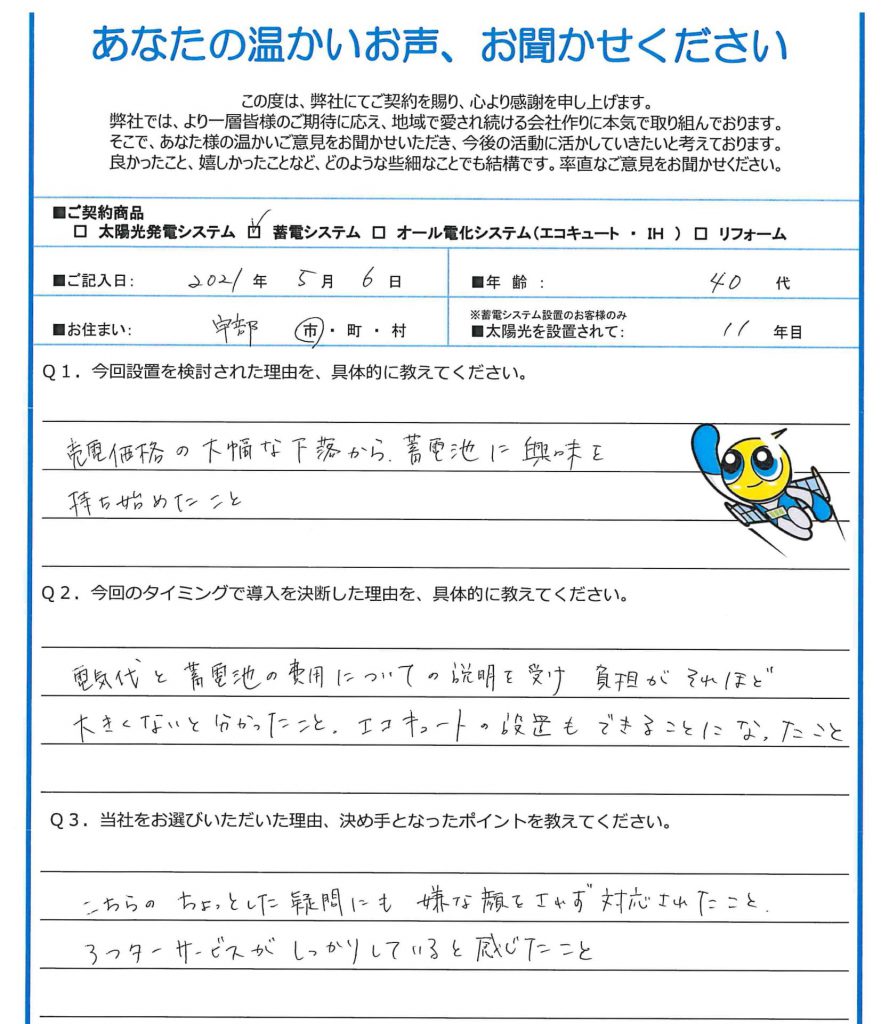 あなたの温かいお声、お聞かせください
この度は、弊社にてご契約を賜り、心より感謝を申し上げます。
弊社では、より一層皆様のご期待に応え、地域で愛され続ける会社作りに本気で取り組んでおります。
そこで、あなた様の温かいご意見をお聞かせいただき、今後の活動に活かしていきたいと考えております。
良かったこと、嬉しかったことなど、どのような些細なことでも結構です。率直なご意見をお聞かせください。
■ご契約商品
□ 太陽光発電システム ☑ 蓄電システム □ オール電化システム(エコキュート ・ IH ) □ リフォーム
■ご記入日: 2021 年 5 月 6 日
■年 齢 : 40 代
■お住まい: 宇部 市 ・ 町 ・ 村
※蓄電システム設置のお客様のみ
■太陽光を設置されて: 11 年目
Q1. 今回設置を検討された理由を、具体的に教えてください。
売電価格の大幅な下落から、蓄電池に興味を
持ち始めたこと
Q2. 今回のタイミングで導入を決断した理由を、具体的に教えてください。
電気代と蓄電池の費用についての説明を受け 負担がそれほど
大きくないと分かったこと。エコキュートの設置もできることになったこと
Q3. 当社をお選びいただいた理由、決め手となったポイントを教えてください。
こちらの ちょっとした疑問にも 嫌な顔をされず 対応されたこと、
サービスが しっかりしていると感じたこと